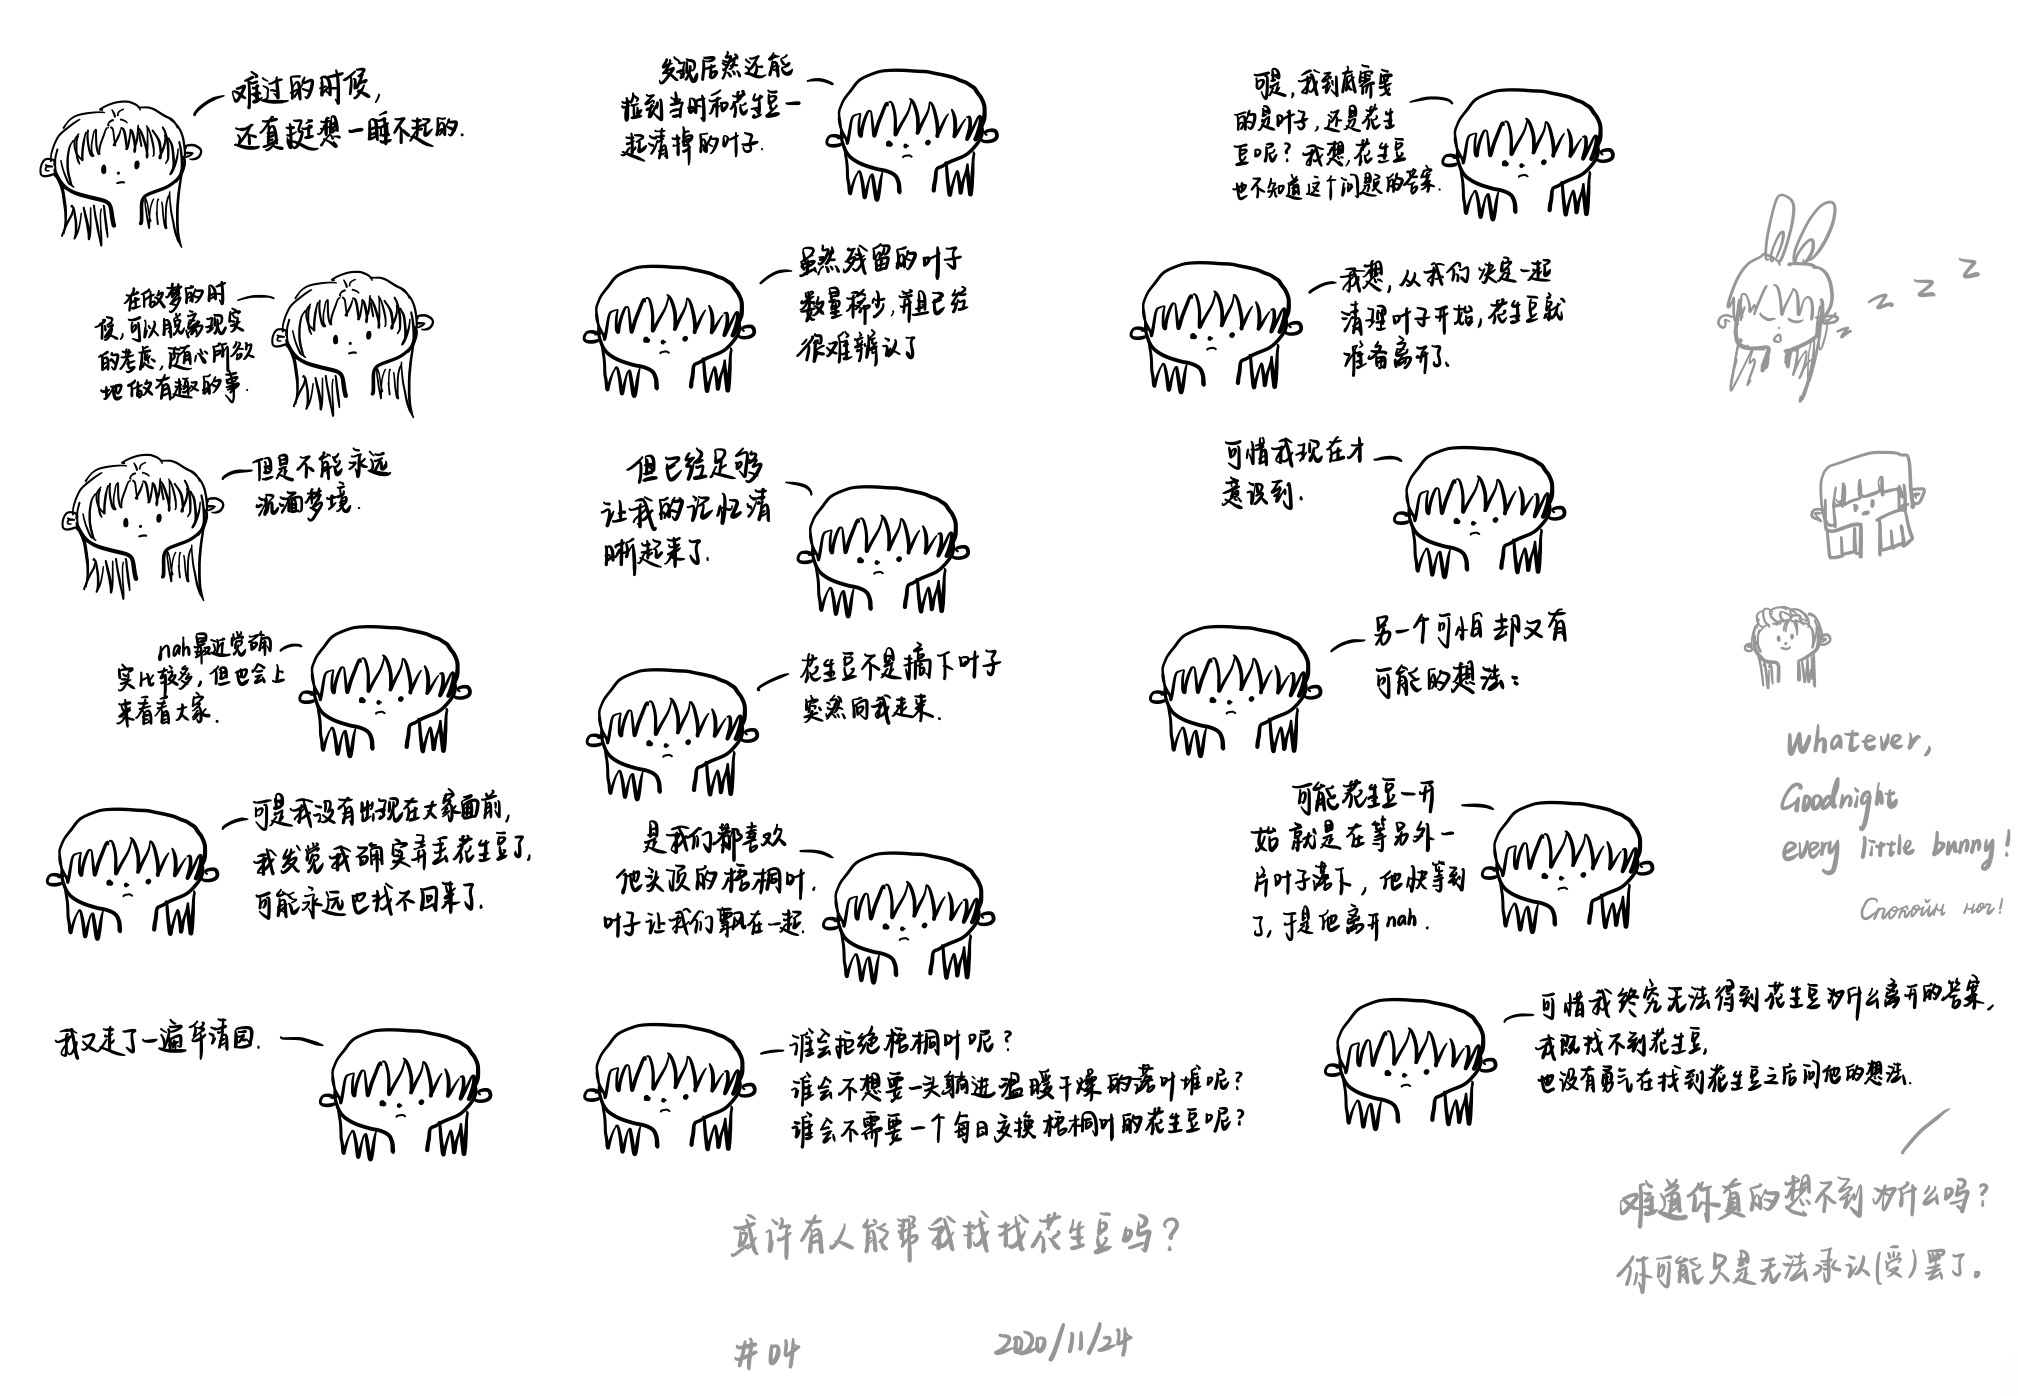 难过的时候，
还真挺想一睡不起的.
在做梦的时
候，可以脱离现实
的考虑，随心所欲
地做有趣的事.
但是不能永远
沉湎梦境.
nah最近觉确
实比较多，但也会上
来看看大家.
可是我没有出现在大家面前，
我发觉我确实弄丢花生豆了，
可能永远也找不回来了.
我又走了一遍华清园.
发现居然还能
捡到当时和花生豆一
起清掉的叶子.
虽然残留的叶子
数量稀少，并且已经
很难辨认了
但已经足够
让我的记忆清
晰起来了.
花生豆不是摘下叶子
突然向我走来.
是我们都喜欢
他头顶的梧桐叶.
叶子让我们飘在一起.
谁会拒绝梧桐叶呢？
谁会不想要一头躺进温暖干燥的落叶堆呢？
谁会不需要一个每日交换梧桐叶的花生豆呢？
可是，我到底需要
的是叶子，还是花生
豆呢？我想，花生豆
也不知道这个问题的答案.
我想，从我们决定一起
清理叶子开始，花生豆就
准备离开了.
可惜我现在才
意识到.
另一个可怕却又有
可能的想法：
可能花生豆一开
始就是在等另外一
片叶子落下，他快等到
了，于是他离开nah.
可惜我终究无法得到花生豆为什么离开的答案，
我既找不到花生豆，
也没有勇气在找到花生豆之后问他的想法.
难道你真的想不到为什么吗？
你可能只是无法承认(受)罢了。
z z z z
Whatever,
Goodnight
every little bunny!
Спокойн ноч!
或许有人能帮我找找花生豆吗？
#04
2020/11/24